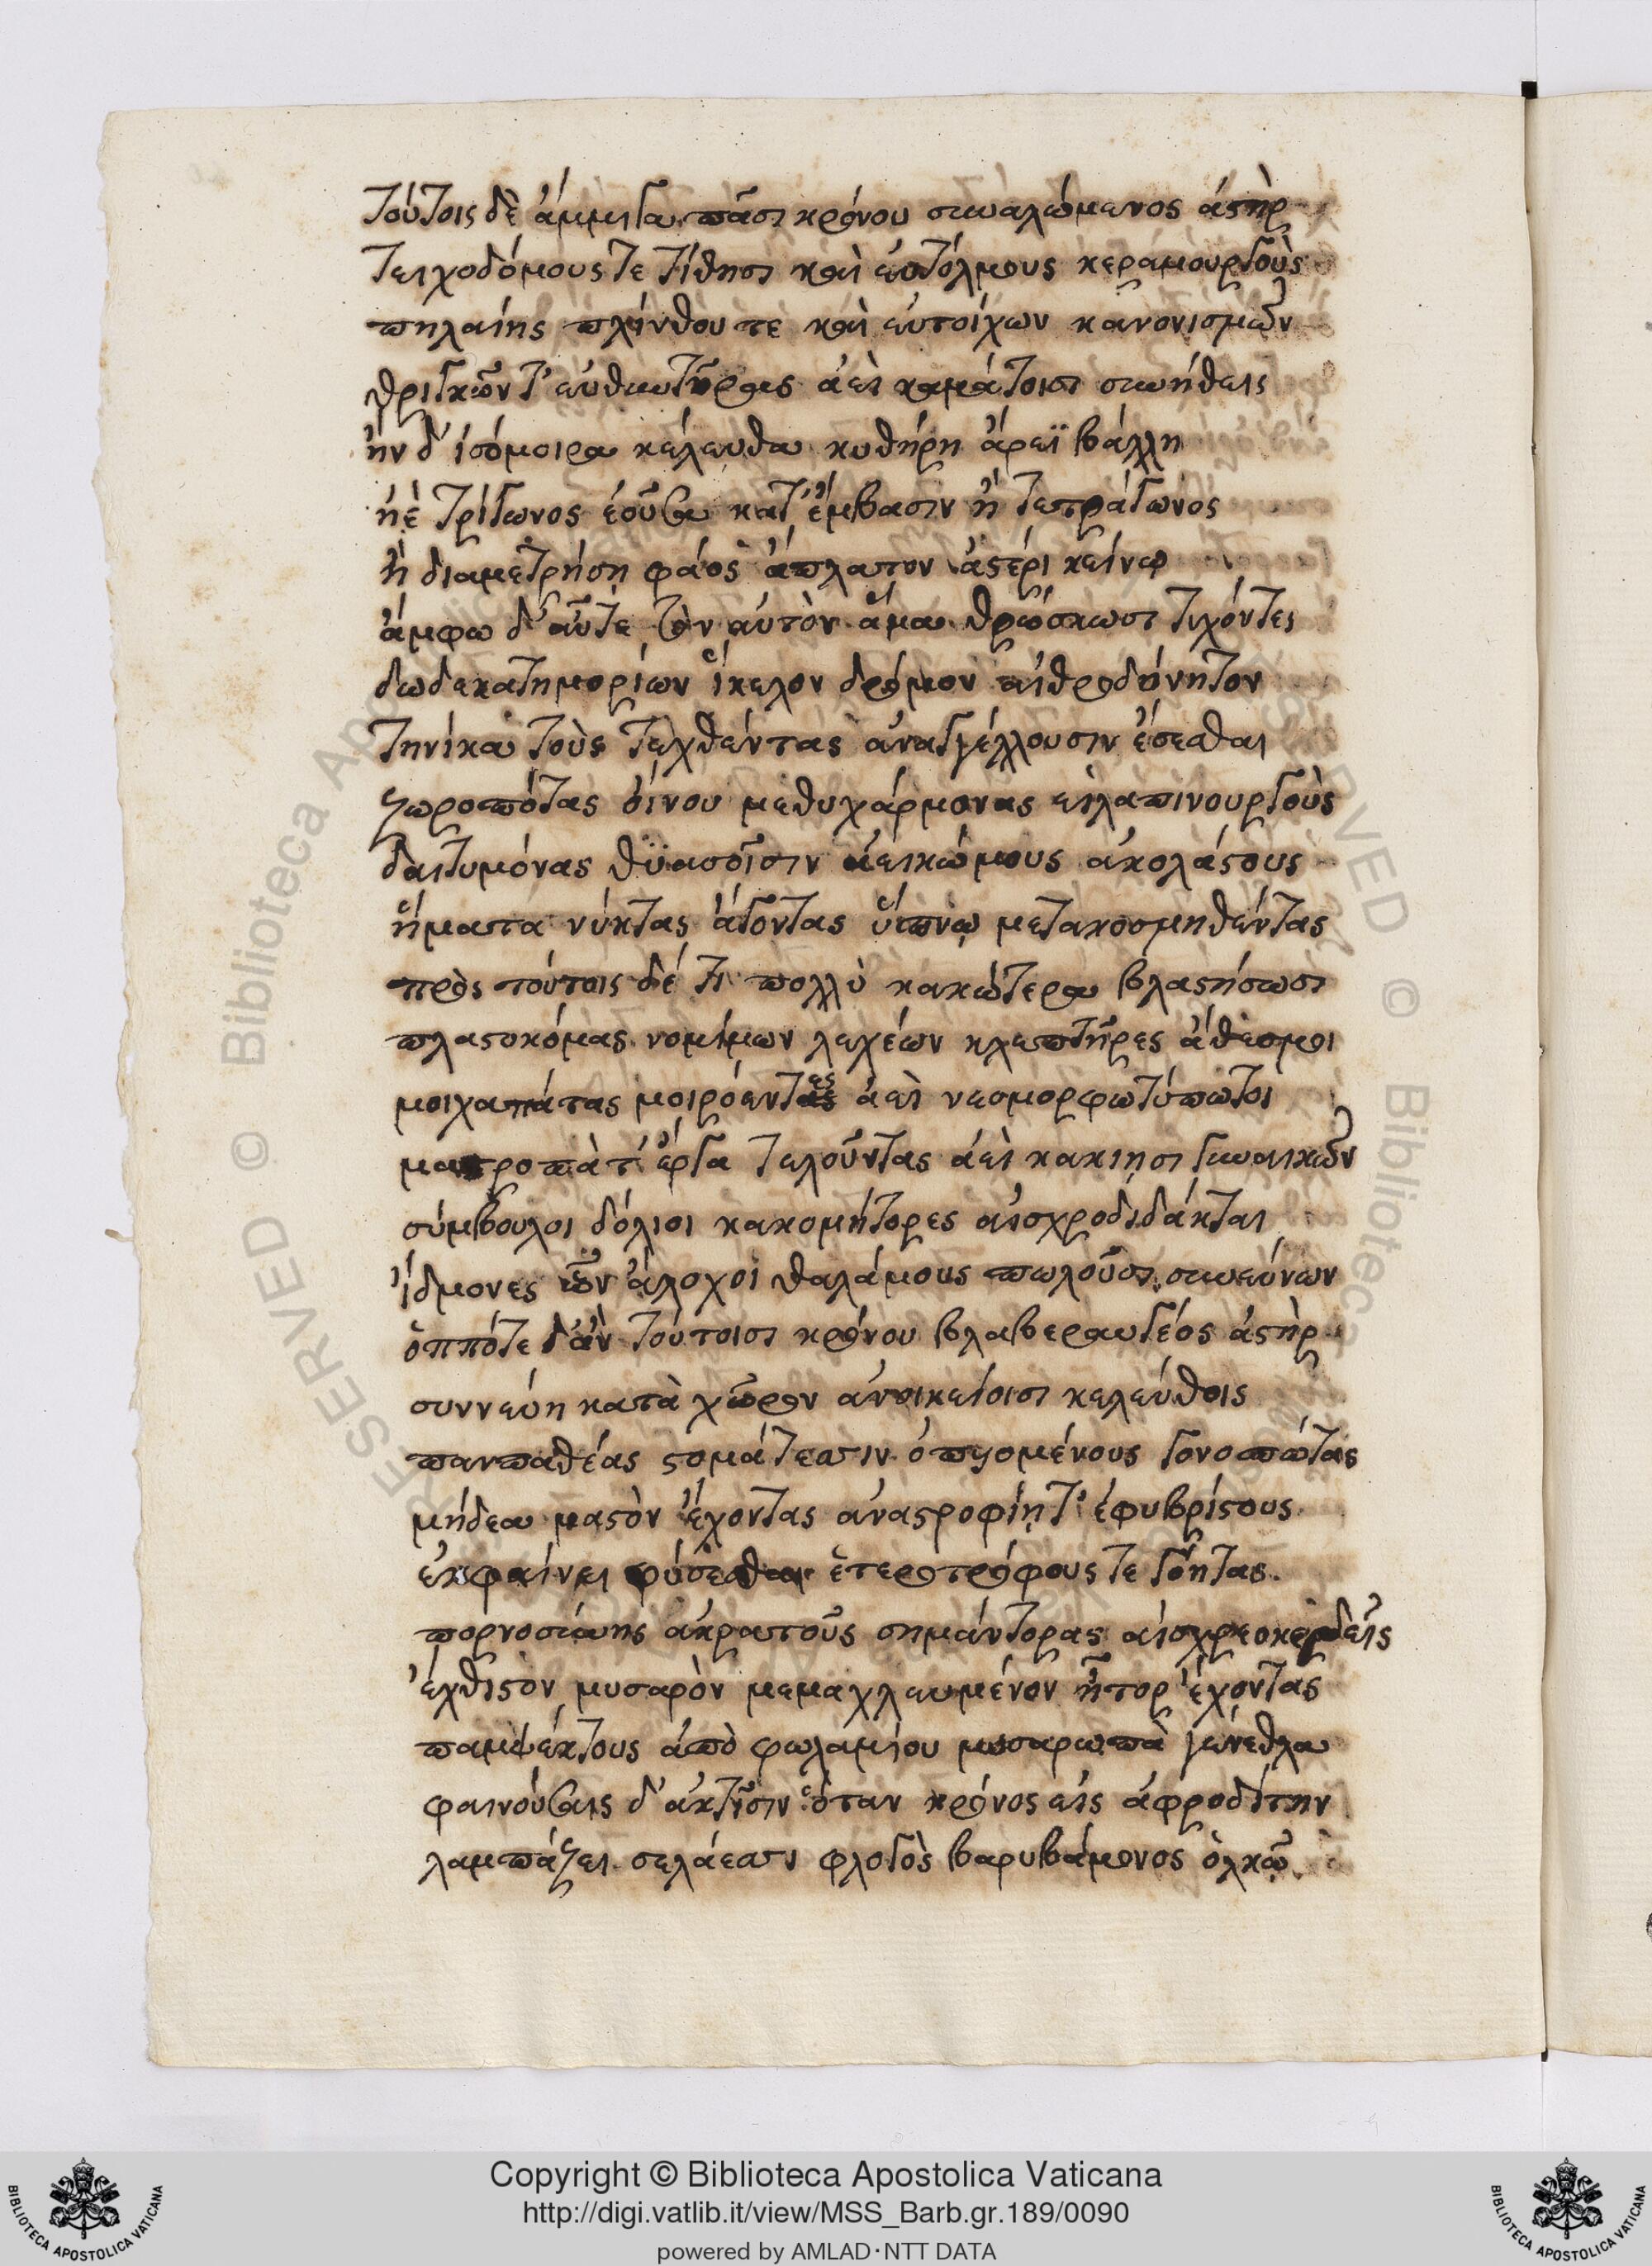 τούτοις δὲ ἄμμιγα πᾶσι κρόνου συναλώμενος ἀστὴρ
τειχοδόμους τε τίθησι καὶ εὐτόλμους κεραμουργοὺς
πηλαίης πλίνθου τε καὶ εὐτοίχων κανονισμῶν
θριγκῶν τ' εὐθυντῆρας ἀεὶ καμάτοισι συνήθεις
ἢν δ' ἰσόμοιρα κέλευθα κυθήρη ἄρεϊ βάλλη
ἠὲ τρίγωνος ἐοῦσα κατ' ἔμβασιν ἢ τετράγωνος
ἢ διαμετρήση φάος ἄπλατον ἀστέρι κείνω
ἄμφω δ' αὖτε τὸν αὐτὸν ἅμα θρώσκωσι τιχόντες
δωδεκατημορίων ἵκελον δρόμον αἰθροδόνητον
τηνίκα τοὺς τεχθέντας ἀναγγέλλουσιν ἔσεσθαι
ζωροπότας οἴνου μεθυχάρμονας εἰλαπινουργοὺς
δαιτυμόνας θϋασοῖσιν ἀεικώμους ἀκολάστους
ἥματα νύκτας ἄγοντας ὕπνω μετακοσμηθέντας
πρὸς τούτοις δέ τι πολλὺ κακώτερα βλαστήσωσι
πλαστοκόμας νομίμων λεχέων κλεπτῆρες ἄθεσμοι
μοιχαπάτας μοιρόεντες ἀεὶ νεομορφωτύπωτοι
ματροπὰτ' ἔργα τελοῦντας ἀεὶ κακιησι γυναικῶν
σύμβουλοι δόλιοι κακομήτορες αἰσχροδιδάκται
ἴδμονες ὧν ἄλοχοι θαλάμους πωλοῦσι συνεύνων
ὁππότε δ' ἂν τούτοισι κρόνου βλαβεραυγέος ἀστὴρ
συννεύη κατὰ χῶρον ἀνοικείοισι κελεύθοις
πανπαθέας στομάτεσσιν ὀπυομένους γονοπώτας
μήδεα μαστὸν ἔχοντας ἀναστροφίη τ' ἐφυβρίστους
ἐκφαίνει φύσεσθαι ἑτεροτρόφους τε γόητας.
πορνοσύνης ἀκρατοῦς σημάντορας αἰσχρεοκερδεῖς
ἔχθιστον μυσαρὸν μεμαχλευμένον ἦτορ ἔχοντας
παμψέκτους ἀπὸ φωλαμίου μυσαρωπὰ γένεθλα
φαινούσαις δ' ἀκτῖσιν ὅταν κρόνος εἰς ἀφροδίτην
λαμπάζει σελάεσσι φλογὸς βαρυβάμονος ὁλκῶ
© Biblioteca Apostolica Vaticana
Copyright © Biblioteca Apostolica Vaticana
http://digi.vatlib.it/view/MSS_Barb.gr.189/0090
powered by AMLAD·NTT DATA
BIBLIOTECA APOSTOLICA VATICANA
BIBLIOTECA APOSTOLICA VATICANA